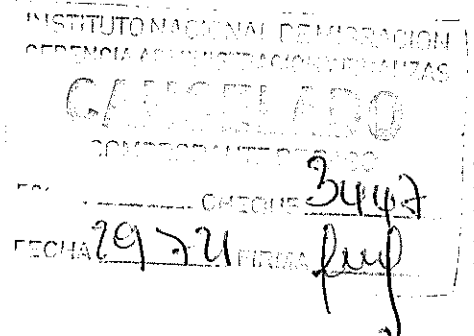 INSTITUTO NACIONAL DE MIGRACION
GERENCIA ADMINISTRACION Y FINANZAS
CANCELADO
COMPROBANTE DE PAGO
CHEQUE 3447
FECHA 29 7 21 FIRMA